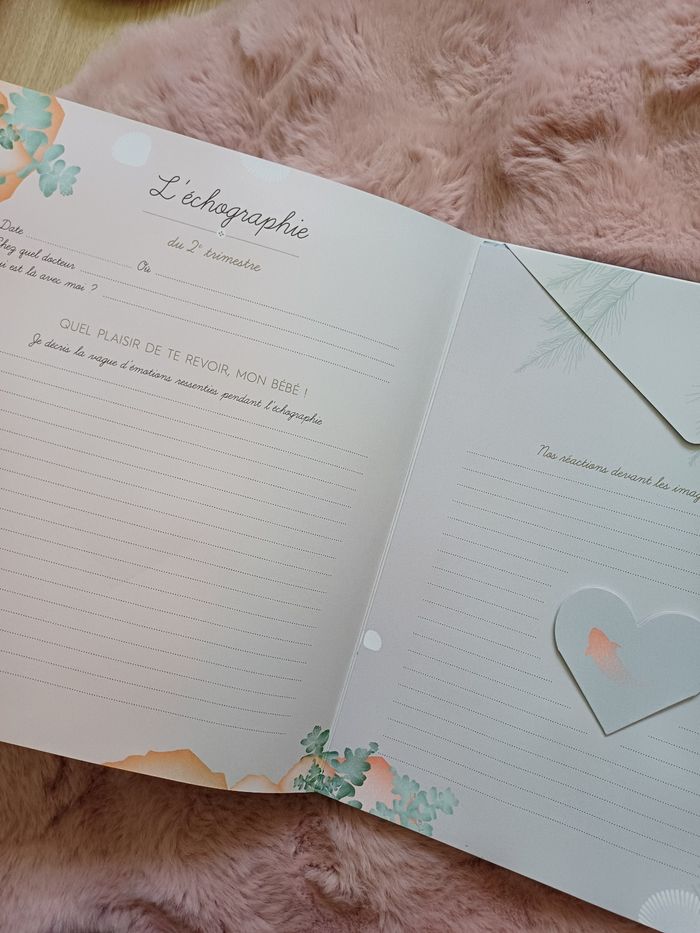 L'échographie
du 2e trimestre
Date
Où
Chez quel docteur
qui est là avec moi ?
QUEL PLAISIR DE TE REVOIR, MON BÉBÉ !
Je décris la vague d'émotions ressenties pendant l'échographie
Nos réactions devant les imag